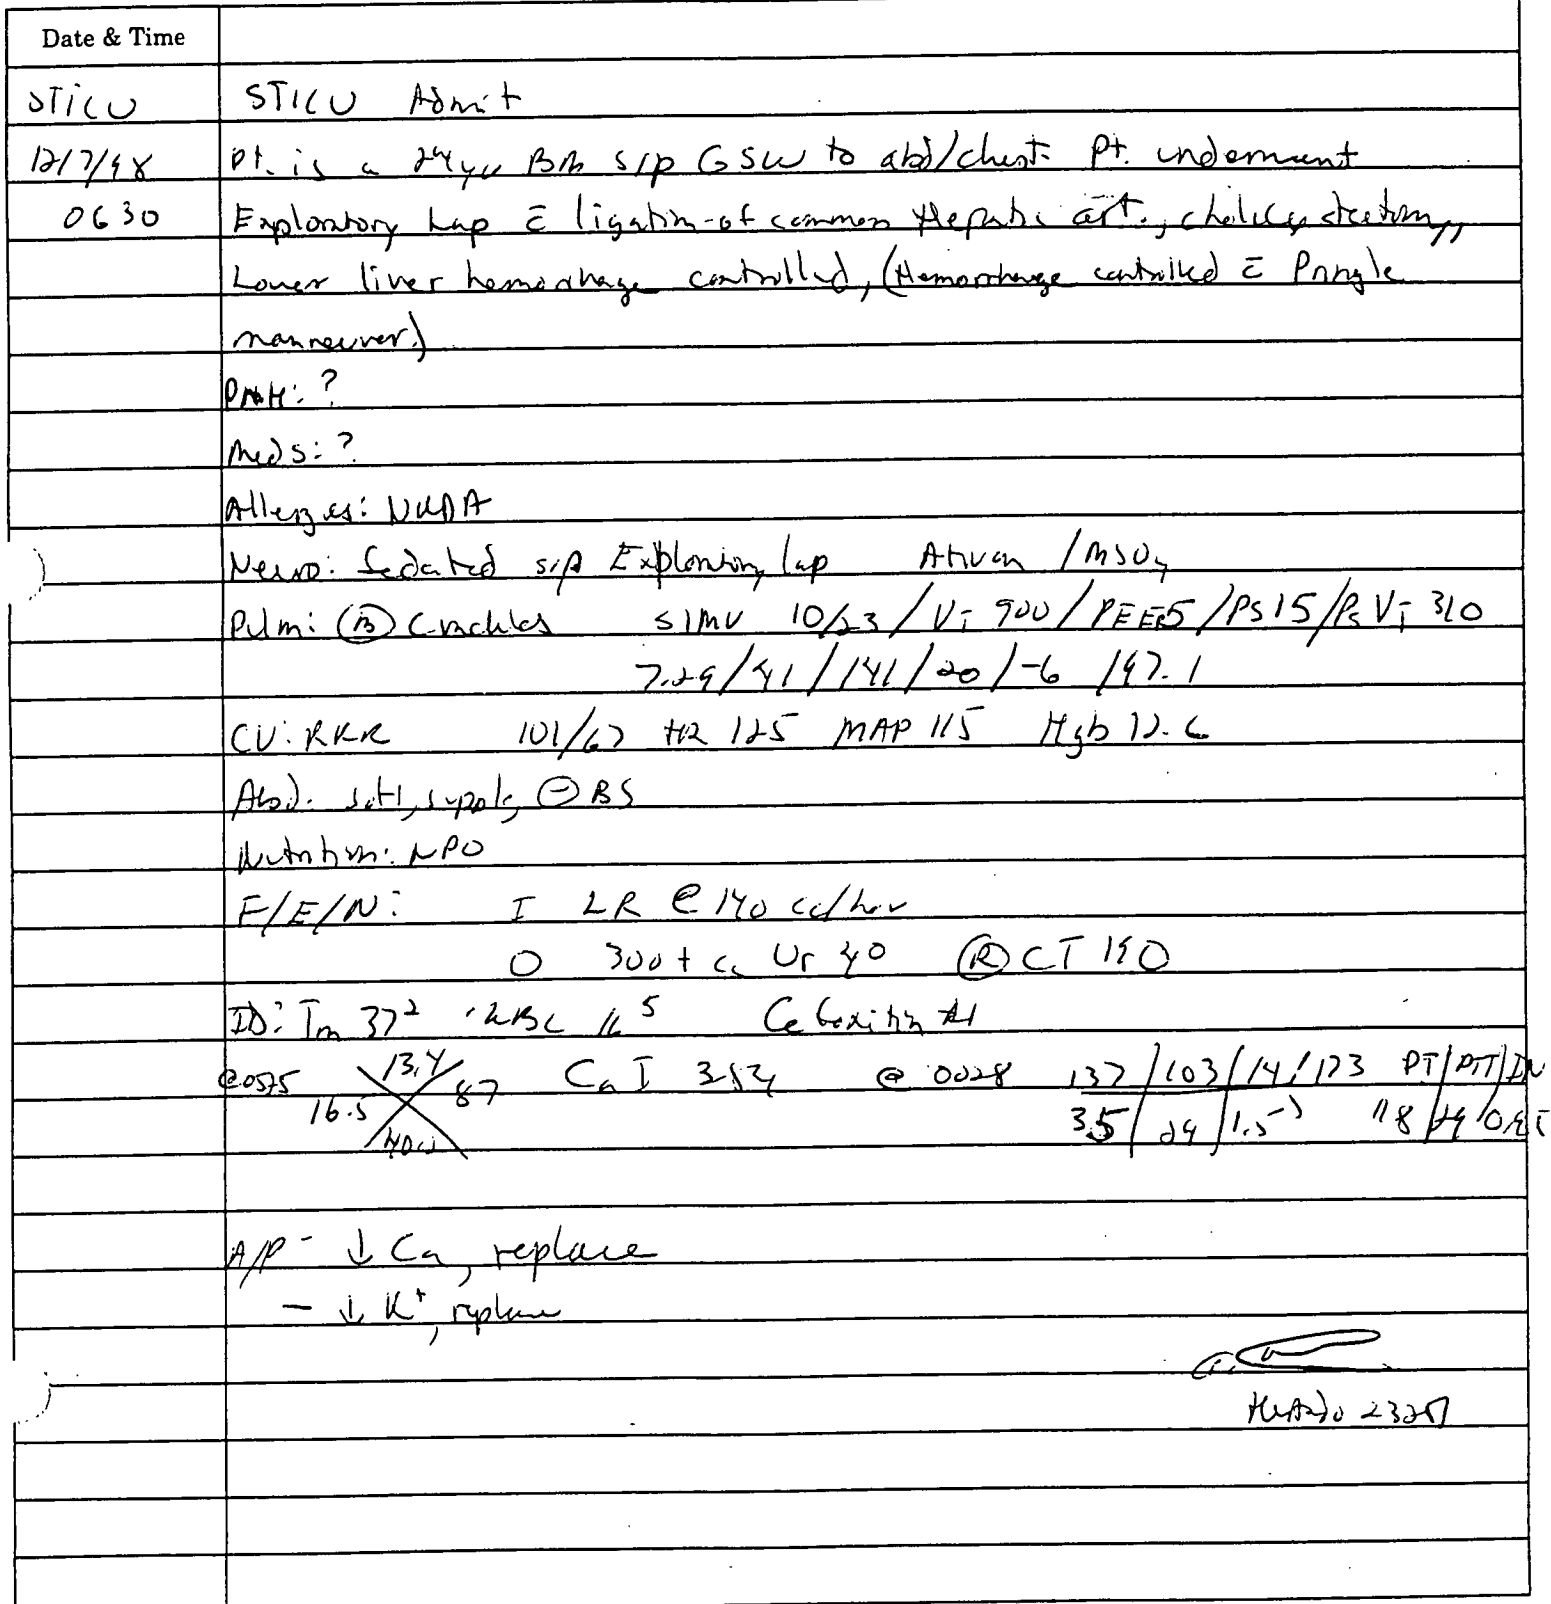 Date & Time
STICU STICU Admit
12/7/98 Pt. is a 24yo BM s/p GSW to abd/chest. Pt. underwent
0630 Exploratory Lap c̄ ligation of common Hepatic art., cholecystectomy,
Lower liver hemorrhage controlled, (Hemorrhage controlled c̄ Pringle
manneuver.)
PMH: ?
Meds: ?
Allergies: NKDA
Neuro: Sedated s/p Exploratory lap Ativan / MSO4
Pulm: Ⓑ Crackles SIMV 10/23 / VT 900 / PEEP5 / PS 15 / Ps VT 310
7.29/41/141/20/-6 /97.1
CV: RRR 101/67 HR 125 MAP 115 Hgb 12.6
Abd: soft, ⊖ BS
Nutrition: NPO
F/E/N: I LR @ 140 cc/hour
O 300+ cc Ur 40 Ⓡ CT 190
ID: Tm 37² WBC 16⁵ Cefoxitin #1
@ 13.4 Ca I @ 0028 137/103/14/173 PT/PTT/IN
16.5 87 3.5/24/1.5 11.8/24
A/P - ↓ Ca, replace
- ↓ K⁺, replace